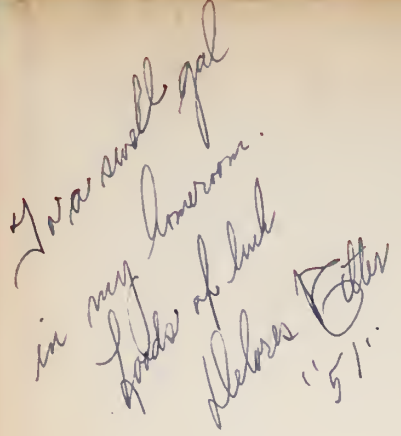 To a swell gal
in my homeroom.
Loads of luck
Delores
"51"